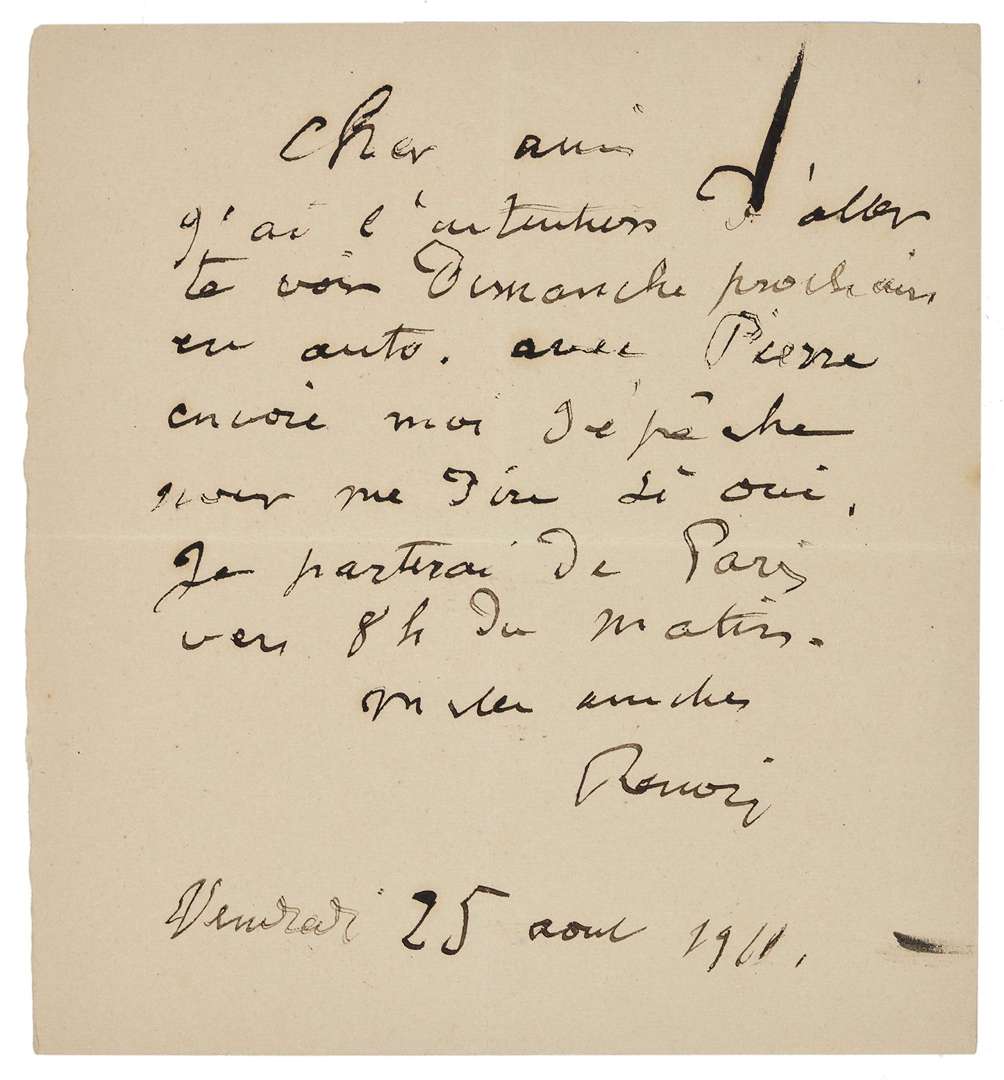 Cher ami
j'ai l'intention d'aller
te voir Dimanche prochain
en auto. avec Pierre
envoie moi dépêche
pour me dire si oui.
Je parterai de Paris
vers 8h du matin.
Renoir
Vendredi 25 aout 1911.